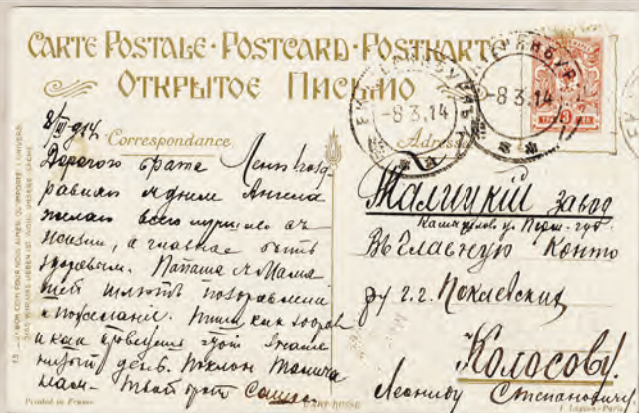 CARTE POSTALE · POSTCARD · POSTKARTE
ОТКРЫТОЕ ПИСЬМО
ЕКАТЕРИНБУРГЪ
-8 3.14
-8 3.14
8/III-914.
Correspondance.
Adresse
Дорогого брата Леню позд
равляю с днем Ангела
желаю всего лучшаго въ
жизни, а главное быть
здоровым. Папаша и Мама
шлютъ поздравления
и пожелания. Пиши как здоров
и как проведешь этот знаме
нитый день. Поклон
Твой брат Саша
Талицкій завод
Камышлов. у. Перм. губ.
Въ Главную Конто
ру г.г. Поклевских
Колосову.
Леониду Степановичу.
Printed in France